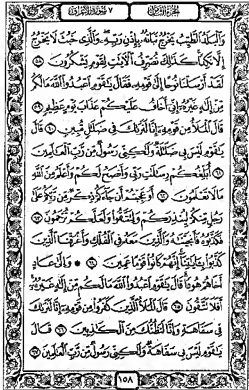 الجزء الثامن ٧ سورة الأعراف
وَٱلْبَلَدُ ٱلطَّيِّبُ يَخْرُجُ نَبَاتُهُۥ بِإِذْنِ رَبِّهِۦ وَٱلَّذِى خَبُثَ لَا يَخْرُجُ
إِلَّا نَكِدًا كَذَٰلِكَ نُصَرِّفُ ٱلْآيَٰتِ لِقَوْمٍ يَشْكُرُونَ ٥٨
لَقَدْ أَرْسَلْنَا نُوحًا إِلَىٰ قَوْمِهِۦ فَقَالَ يَٰقَوْمِ ٱعْبُدُوا۟ ٱللَّهَ مَا لَكُم
مِّنْ إِلَٰهٍ غَيْرُهُۥٓ إِنِّىٓ أَخَافُ عَلَيْكُمْ عَذَابَ يَوْمٍ عَظِيمٍ ٥٩
قَالَ ٱلْمَلَأُ مِن قَوْمِهِۦٓ إِنَّا لَنَرَىٰكَ فِى ضَلَٰلٍ مُّبِينٍ ٦٠ قَالَ
يَٰقَوْمِ لَيْسَ بِى ضَلَٰلَةٌ وَلَٰكِنِّى رَسُولٌ مِّن رَّبِّ ٱلْعَٰلَمِينَ
٦١ أُبَلِّغُكُمْ رِسَٰلَٰتِ رَبِّى وَأَنصَحُ لَكُمْ وَأَعْلَمُ مِنَ ٱللَّهِ
مَا لَا تَعْلَمُونَ ٦٢ أَوَعَجِبْتُمْ أَن جَآءَكُمْ ذِكْرٌ مِّن رَّبِّكُمْ عَلَىٰ
رَجُلٍ مِّنكُمْ لِيُنذِرَكُمْ وَلِتَتَّقُوا۟ وَلَعَلَّكُمْ تُرْحَمُونَ ٦٣
فَكَذَّبُوهُ فَأَنجَيْنَٰهُ وَٱلَّذِينَ مَعَهُۥ فِى ٱلْفُلْكِ وَأَغْرَقْنَا ٱلَّذِينَ
كَذَّبُوا۟ بِـَٔايَٰتِنَآ إِنَّهُمْ كَانُوا۟ قَوْمًا عَمِينَ ٦٤ ۞ وَإِلَىٰ عَادٍ
أَخَاهُمْ هُودًا قَالَ يَٰقَوْمِ ٱعْبُدُوا۟ ٱللَّهَ مَا لَكُم مِّنْ إِلَٰهٍ غَيْرُهُۥٓ
أَفَلَا تَتَّقُونَ ٦٥ قَالَ ٱلْمَلَأُ ٱلَّذِينَ كَفَرُوا۟ مِن قَوْمِهِۦٓ إِنَّا لَنَرَىٰكَ
فِى سَفَاهَةٍ وَإِنَّا لَنَظُنُّكَ مِنَ ٱلْكَٰذِبِينَ ٦٦ قَالَ
يَٰقَوْمِ لَيْسَ بِى سَفَاهَةٌ وَلَٰكِنِّى رَسُولٌ مِّن رَّبِّ ٱلْعَٰلَمِينَ ٦٧
١٥٨